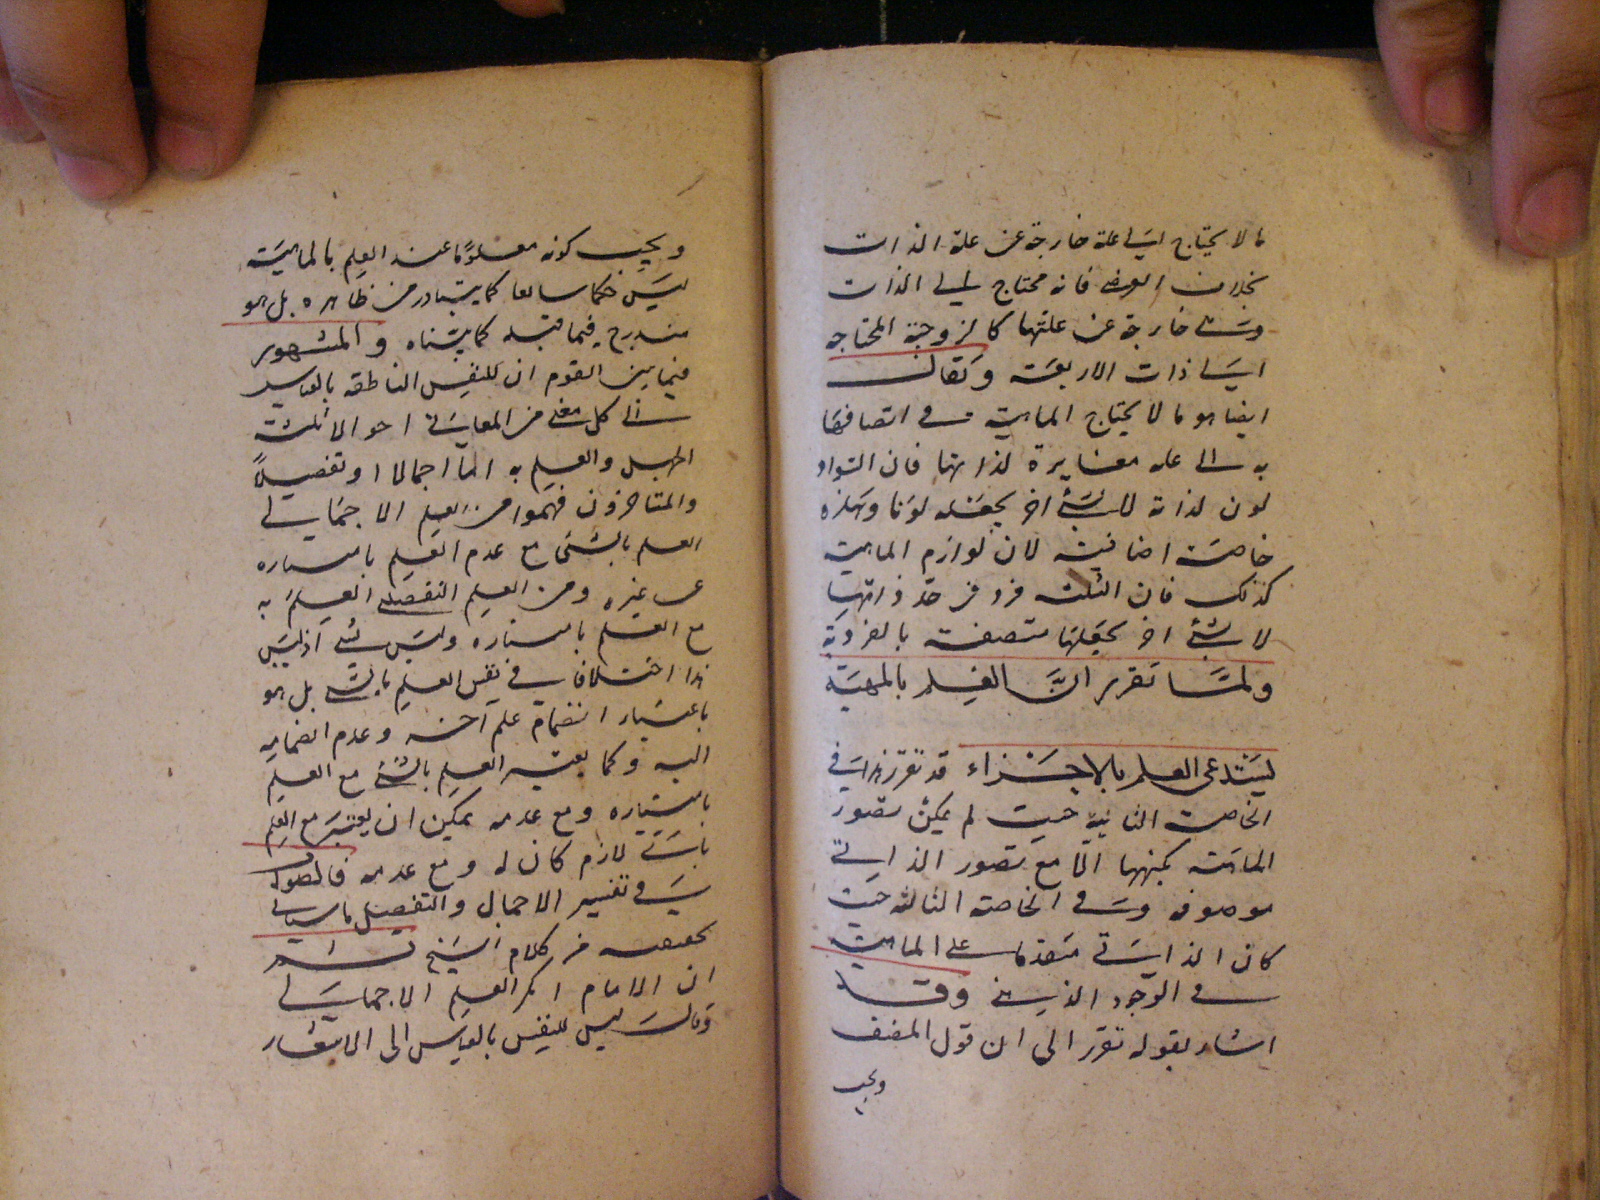 ما لا يحتاج الى علة خارجة عن علة الذات
بخلاف العرضى فانه محتاج الى الذات
وهى خارجة عن علتها كالزوجية المحتاجه
الى ذات الاربعة وقال
ايضا هو ما لا يحتاج الماهية فى اتصافها
به الى علة مغايرة لذاتها فان السواد
لون لذاته لا لشئ اخر يجعله لونا وهذه
خاصة اضافية لان لوازم الماهية
كذلك فان الثلثه فرد فى حد ذاتها
لا لشئ اخر يجعلها متصفة بالفردية
ولما تقرر ان العلم بالمهية
يستدعى العلم بالاجزاء قد تقرر هذا فى
الخاصة الثانية حيث لم يمكن تصور
الماهية بكنهها الا مع تصور الذاتى
موصوفه وفى الخاصة الثالثة حيث
كان الذاتى متقدما على الماهية
فى الوجود الذهنى وقد
اشار بقوله تقرر الى ان قول المصنف
ويجب
ويجب كونه معلوما عند العلم بالماهية
ليس حكما سابعا كما يتبادر من ظاهره بل هو
مندرج فيما قبله كما بيناه والمشهور
فيما بين القوم ان للنفس الناطقه بالقياس
الى كل معنى من المعانى احوالا ثلثة
الجهل والعلم به اما اجمالا او تفصيلا
والمتاخرون فهموا من العلم الاجمالى
العلم بالشئ مع عدم العلم بامتيازه
عن غيره ومن العلم التفصيلى العلم به
مع العلم بامتيازه وليس بشئ اذ ليس
هذا اختلافا فى نفس العلم بالشئ بل هو
باعتبار انضمام علم اخر وعدم انضمامه
اليه وكما يعتبر العلم بالشئ مع العلم
بامتيازه ومع عدمه يمكن ان يعتبر مع العلم
باى لازم كان له ومع عدمه فالصواب
فى تفسير الاجمال والتفصيل ما سياتى
تحقيقه من كلام الشيخ
ان الامام انكر العلم الاجمالى
وقال ليس للنفس بالقياس الى الاشياء